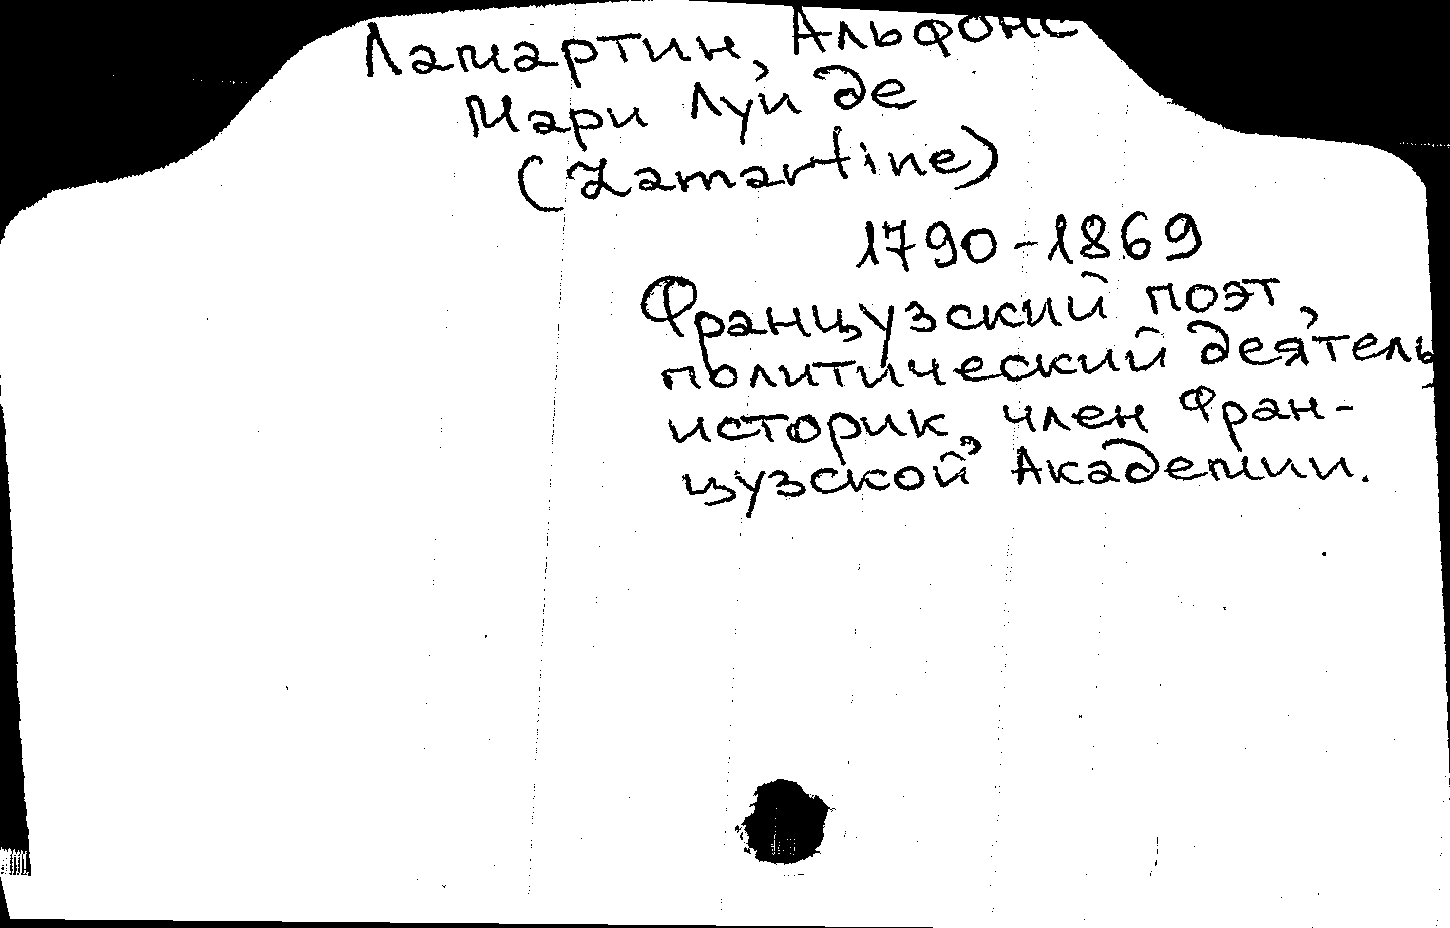 Ламартин, Альфонс
Мари Луи де
(Lamartine)
1790-1869
Французский поэт,
политический деятель
историк, член Фран-
цузской Академии.